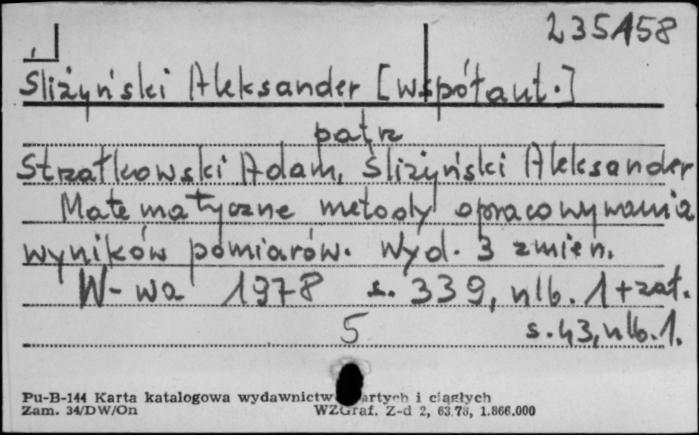 235158
Śliżyński Aleksander [współaut.]
patrz
Strzałkowski Adam, Śliżyński Aleksander
Matematyczne metody opracowywania
wyników pomiarów. Wyd. 3 zmien.
W-wa 1978 s. 339, nlb. 1 + zał.
5 s. 43, nlb. 1.
Pu-B-144 Karta katalogowa wydawnictw i ciągłych
Zam. 34/DW/On WZGraf. Z-d 2, 63.78, 1.866.000